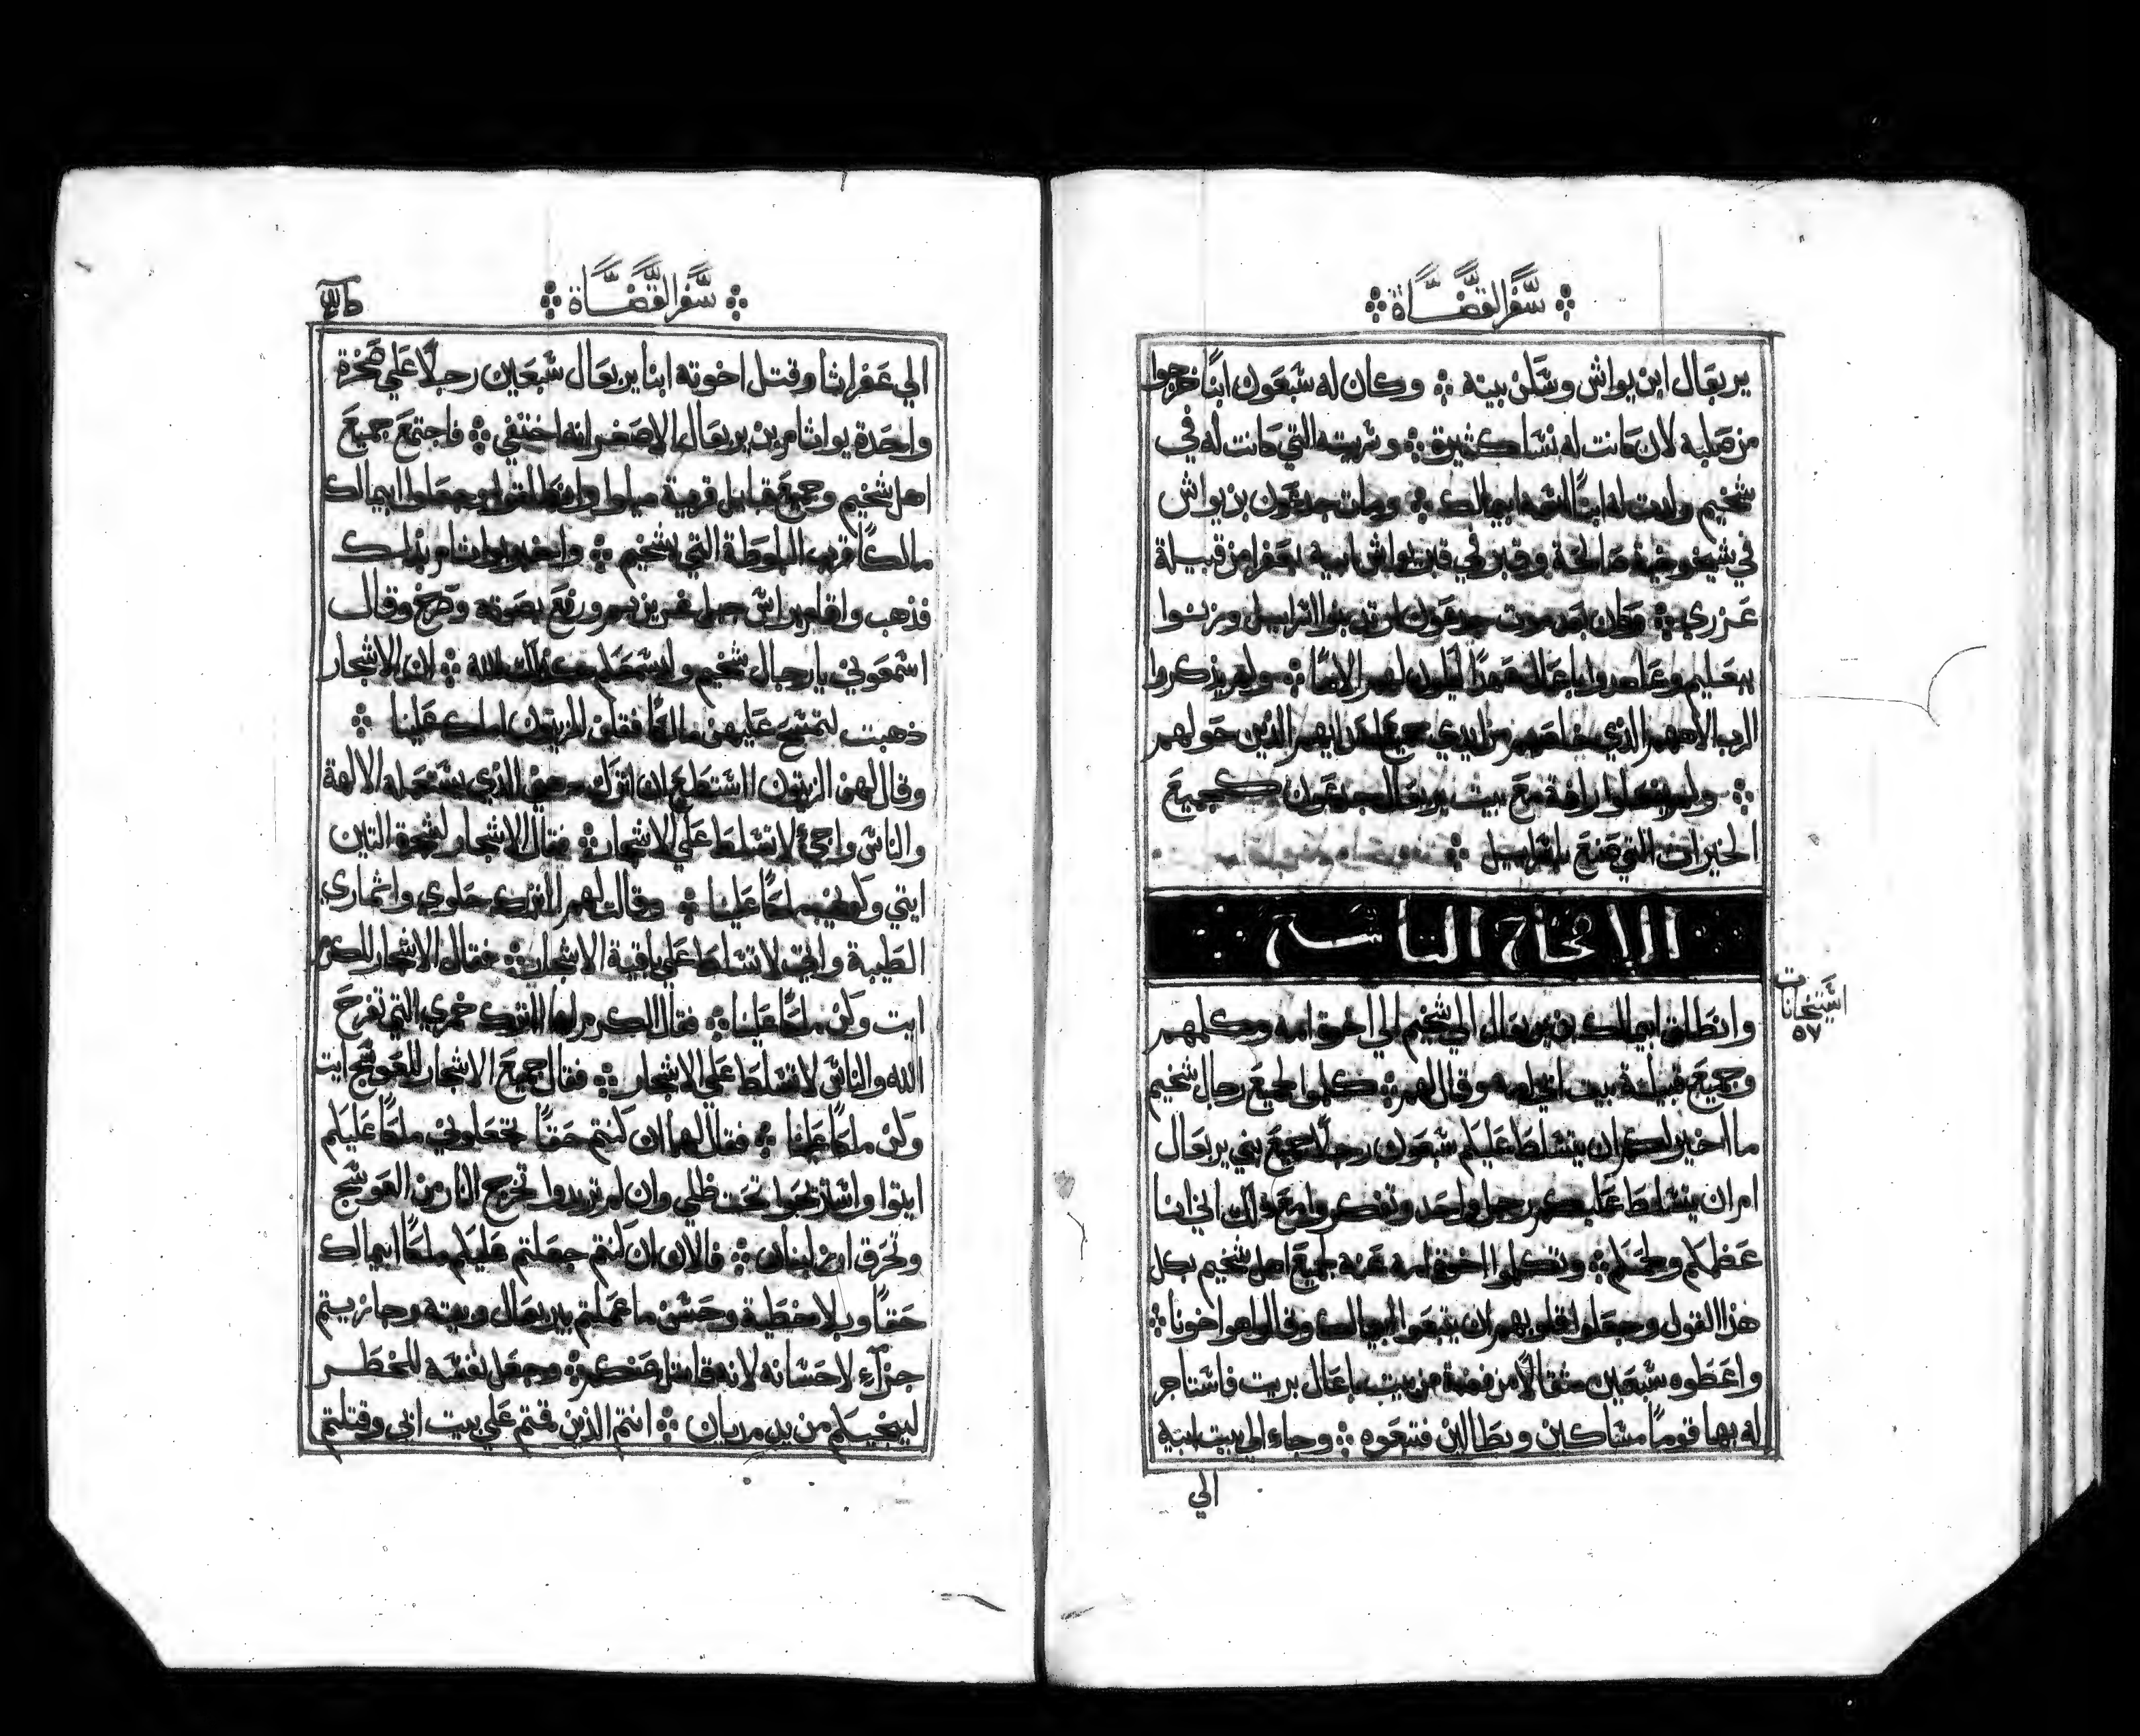 سفر القضاة
يربعال ابن يواش وسكن بيته ۞ وكان له سبعون ابنًا خرجوا
من صلبه لان كانت له نسا كثيرة ۞ وسريته التي كانت له في
شخيم ولدت له ابنًا اسمه ابيمالك ۞ ومات جدعون بن يواش
في شيخوخة صالحة وقبر في قبر يواش ابيه بعفرا من قبيلة
عزري ۞ وكان بعد موت جدعون ارتد بنو اسرائيل وزنوا
ببعليم وعاهدوا باعال عهدًا ليكون لهم الاهًا ۞ ولم يذكروا
الرب الاههم الذي خلصهم من ايدي جميع اعدايهم الذين حولهم
۞ ولم يفعلوا رافة مع بيت يربعال جدعون كجميع
الخيرات التي صنع باسراييل ۞
الاصحاح التاسع
وانطلق ابيمالك بن يربعال الي شخيم الي اخوة امه وكلمهم
وجميع قبيلة بيت ابي امه وقال لهم ۞ كلموا جميع رجال شخيم
ما اخير لكم ان يتسلط عليكم سبعون رجلًا جميع بني يربعال
ام ان يتسلط عليكم رجل واحد وتفكروا مع ذلك اني انا
عظمكم ولحمكم ۞ وتكلموا اخوة امه عنه لجميع اهل شخيم بكل
هذا القول وجعلوا قلوبهم ان يتبعوا ابيمالك وقالوا هو اخونا ۞
واعطوه سبعين مثقالًا من فضة من بيت باعال بريت فاستاجر
له بها قومًا مساكين وبطالين فتبعوه ۞ وجاء الي بيت ابيه
الي
٥٧
سفر القضاة
الي عفراثا وقتل اخوته ابنا يربعال سبعين رجلًا علي صخرة
واحدة يواثام بن يربعال الاصغر انه اختفي ۞ فاجتمع جميع
اهل شخيم وجميع قبايل قرية ميلوا وانطلقوا وجعلوا ابيمالك
مالكًا قريب البلوطة التي بشخيم ۞ واخبر يواثام بذلك
فذهب وقام براس جبل غريزيم ورفع بصوته وصرخ وقال
اسمعوني يا رجال شخيم الله ۞ ان الاشجار
ذهبت لتمسح عليهن مالكًا فقلن للزيتون املك علينا ۞
وقال لهن الزيتون استطيع ان اترك الذي يستعمله الالهة
والناس واجئ لاتسلط علي الاشجار ۞ فقال الاشجار لشجرة التين
ايتي وكوني ملكًا علينا ۞ وقالت لهم ااترك حلوي واثماري
الطيبة واتي لاتسلط علي باقية الاشجار ۞ فقال الاشجار للكرم
ايت وكن ملكًا علينا ۞ فقال الكرم لها ااترك خمري التي تفرح
الله والناس لاتسلط علي الاشجار ۞ فقال جميع الاشجار للعوسج ايت
وكن ملكًا علينا ۞ فقال لهم ان كنتم حقًا تجعلوني ملكًا عليكم
ايتوا واستريحوا تحت ظلي وان لم تريدوا تخرج النار من العوسج
وتحرق ارز لبنان ۞ فالان ان كنتم جعلتم عليكم ملكًا ابيمالك
حقًا وبلا خطية وحسن ما عملتم بيربعال وبيته وجازيتم
جزآء لاحسانه لانه قاتل عنكم ۞ وجعل نفسه للخطر
لينجيكم من يد مديان ۞ انتم الذين قمتم علي بيت ابي وقتلتم